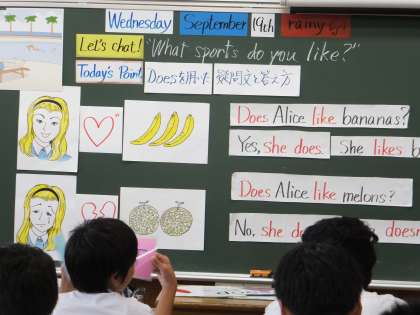 Wednesday September 19th rainy
Let's chat! "What sports do you like?"
Today's Point Doesを用いた疑問文と答え方
Does Alice like bananas?
Yes, she does. She likes b
Does Alice like melons?
No, she do doesn